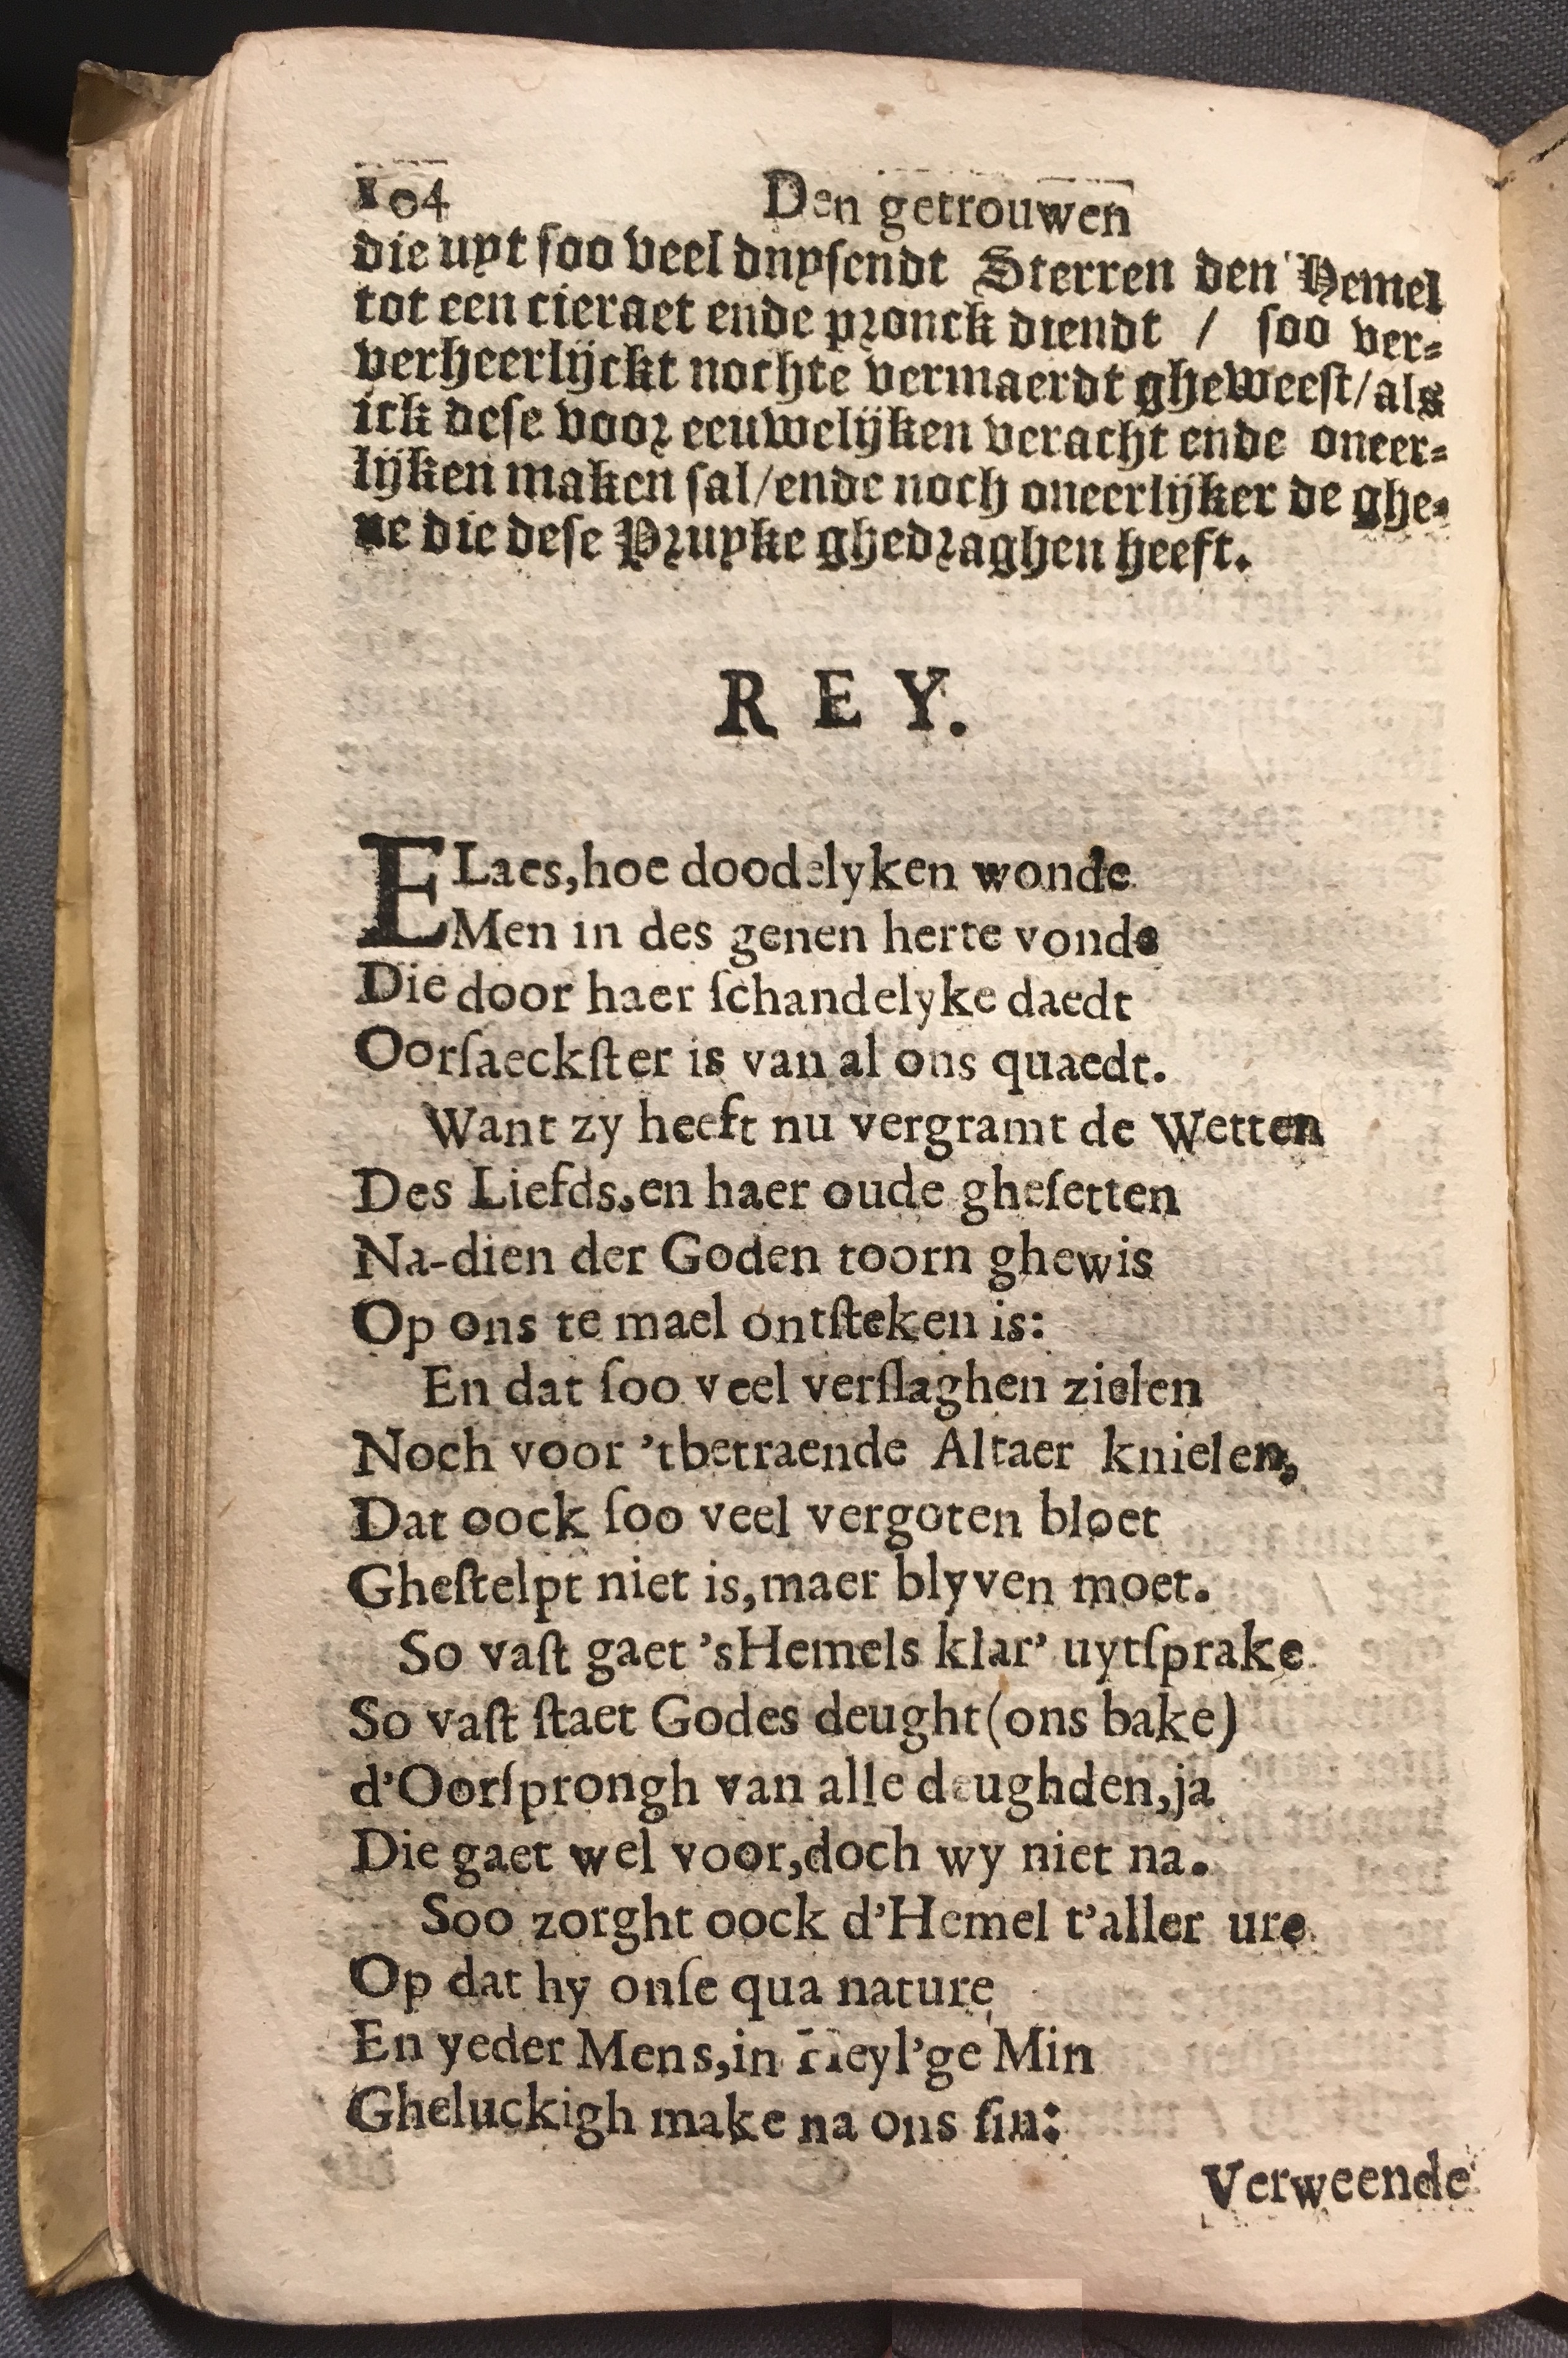 104 Den getrouwen
die uyt ſoo veel dnyſendt Sterren den Hemel
tot een cieraet ende pronck diendt / ſoo ver-
verheerlijckt nochte vermaerdt gheweeſt/als
ick deſe voor eeuwelijken veracht ende oneer-
lijken maken ſal/ende noch oneerlijker de ghe-
ne die deſe Pruyke ghedraghen heeft.
REY.
ELaes,hoe doodelyken wonde
Men in des genen herte vonde
Die door haer ſchandelyke daedt
Oorſaeckſter is van al ons quaedt.
Want zy heeft nu vergramt de Wetten
Des Liefds,en haer oude gheſetten
Na-dien der Goden toorn ghewis
Op ons te mael ontſteken is:
En dat ſoo veel verſlaghen zielen
Noch voor 'tbetraende Altaer knielen,
Dat oock ſoo veel vergoten bloet
Gheſtelpt niet is,maer blyven moet.
So vaſt gaet 'sHemels klar' uytſprake
So vaſt ſtaet Godes deught(ons bake)
d'Oorſprongh van alle deughden,ja
Die gaet wel voor,doch wy niet na.
Soo zorght oock d'Hemel t'aller ure
Op dat hy onſe qua nature
En yeder Mens,in Heyl'ge Min
Gheluckigh make na ons ſin:
Verweende